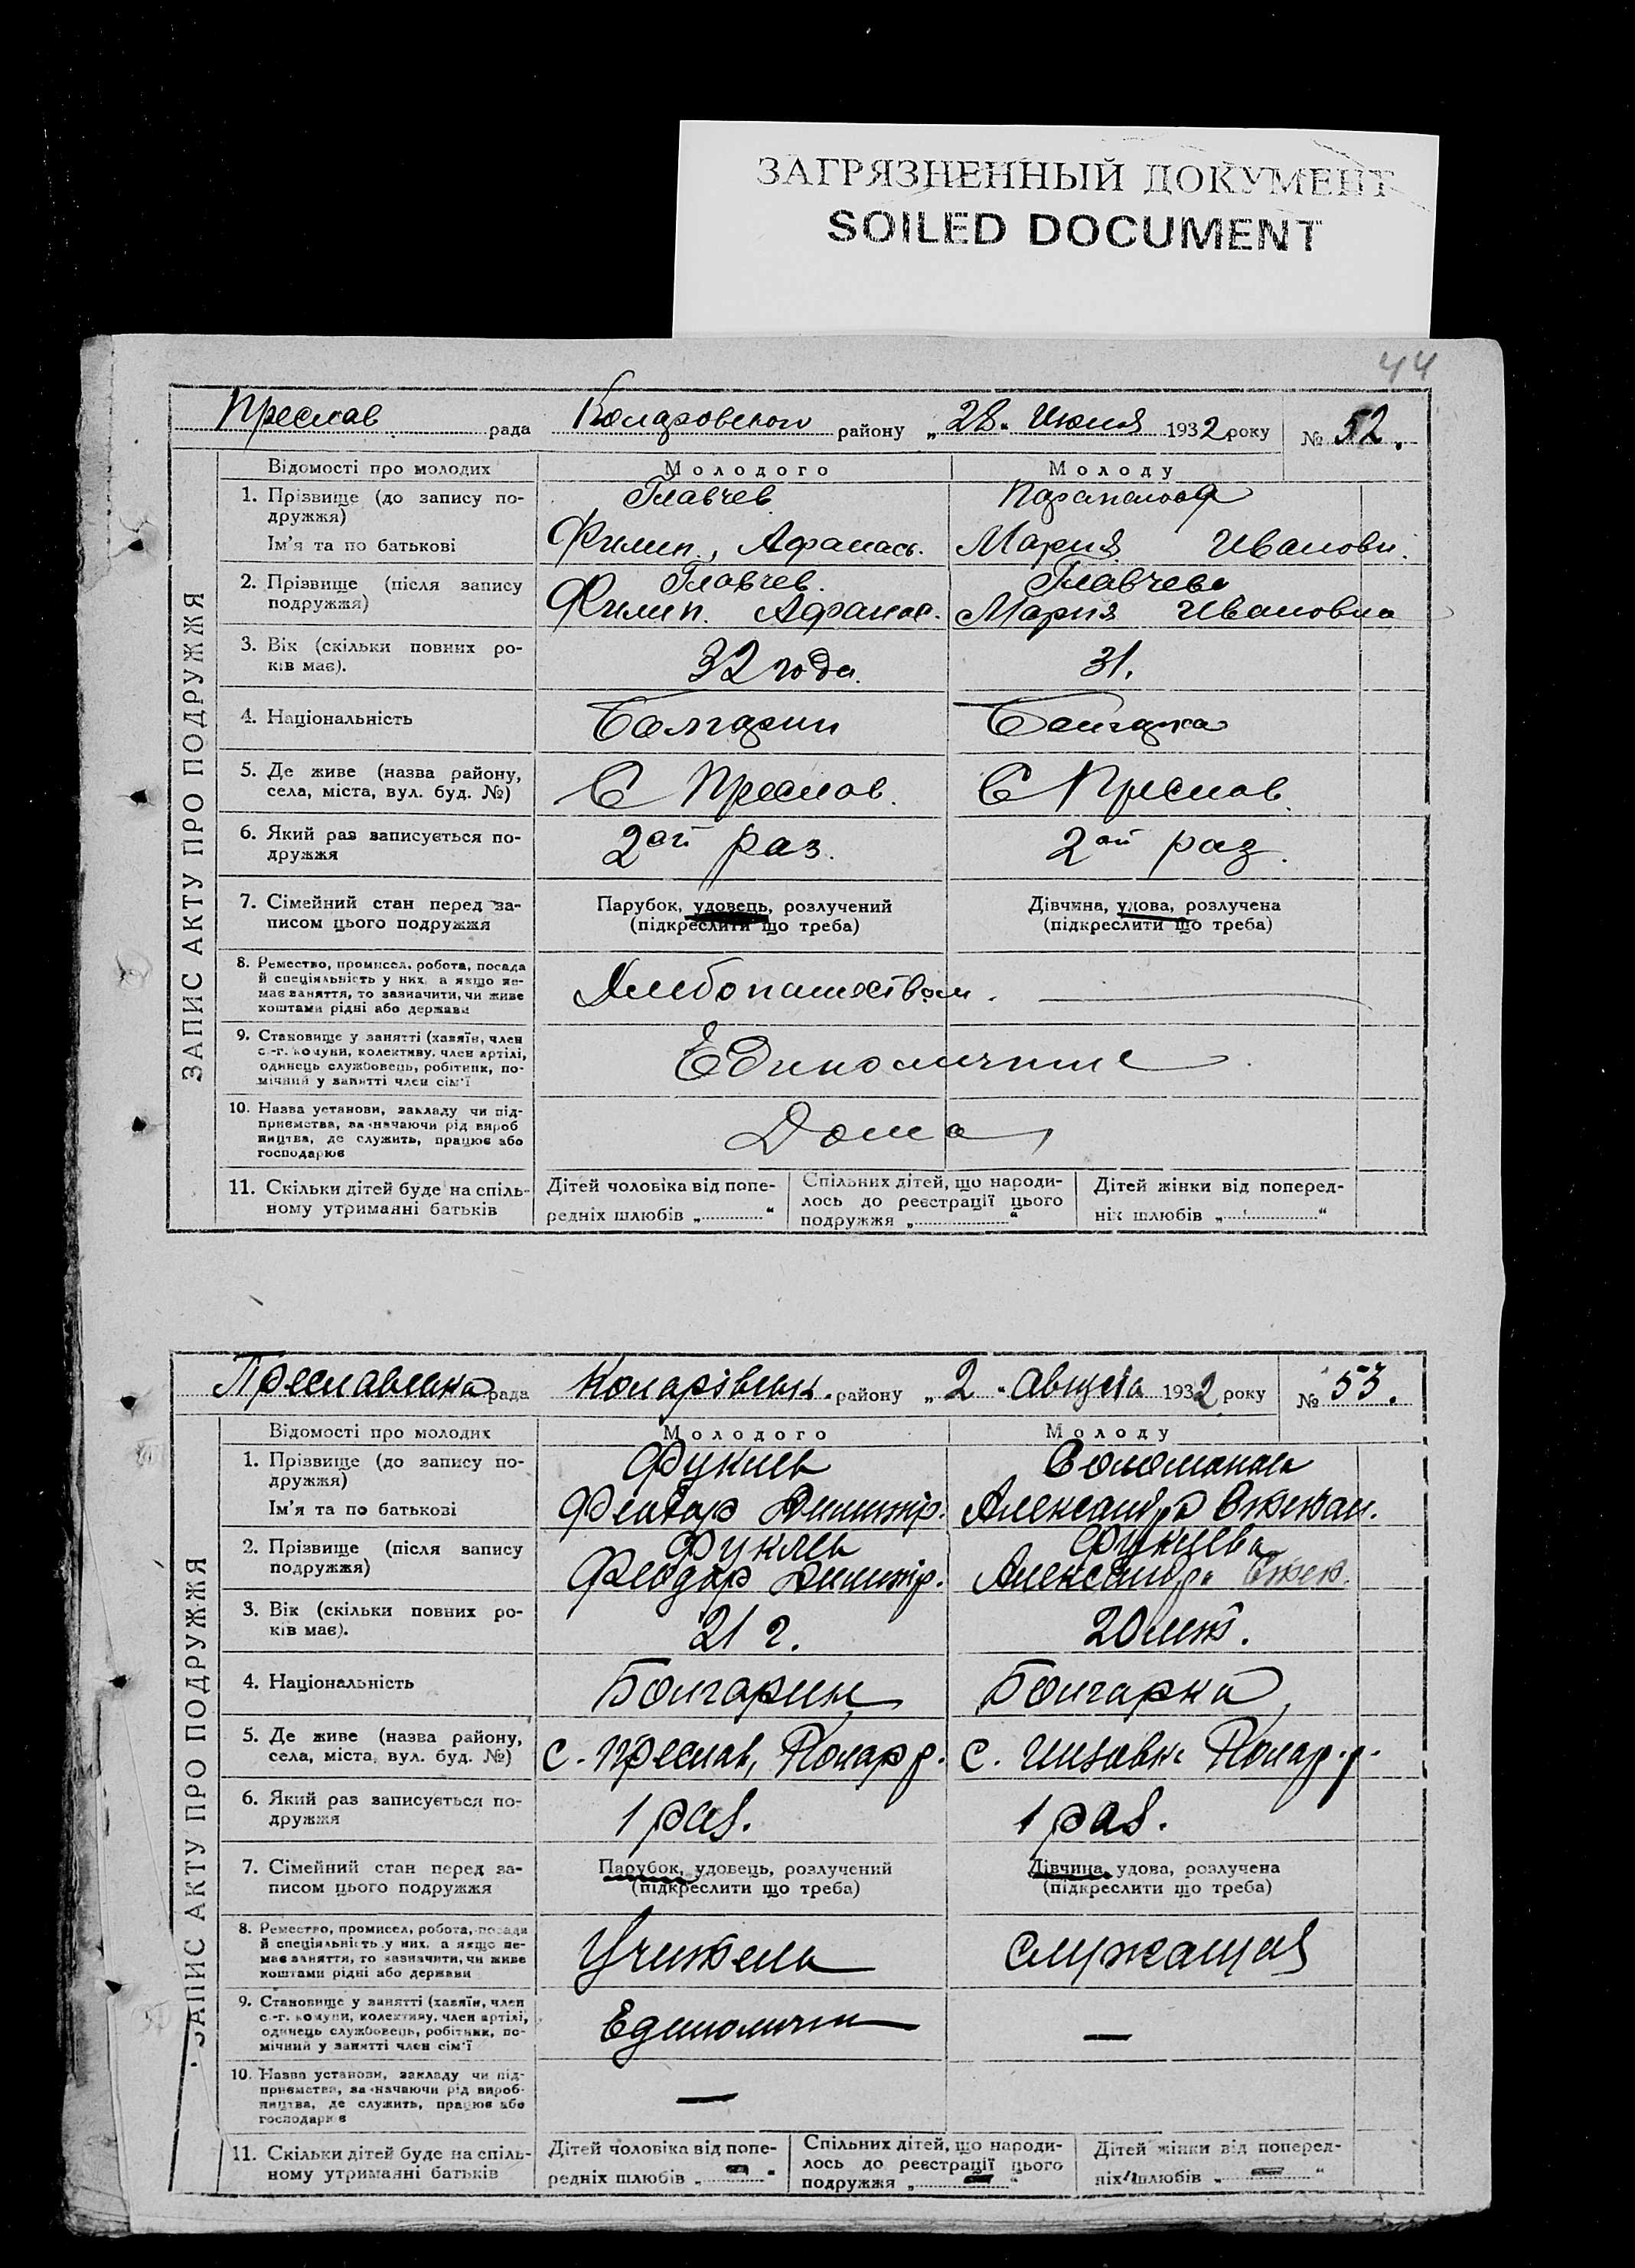 ЗАГРЯЗНЕННЫЙ ДОКУМЕНТ
SOILED DOCUMENT
44
Преслав рада Коларовского району „28" Июля 1932 року № 52.
ЗАПИС АКТУ ПРО ПОДРУЖЖЯ
Відомості про молодих Молодого Молоду
1. Прізвище (до запису по- Главчев
дружжя)
Ім'я та по батькові Филип, Афанась. Мария Ивановн.
2. Прізвище (після запису Главчев. Главчева
подружжя) Филип. Афанас. Мария Ивановна
3. Вік (скільки повних ро- 32 года. 31.
ків має).
4. Національність Болгарин Болгарка
5. Де живе (назва району, С Преслав. С Преслав.
села, міста, вул. буд. №)
6. Який раз записується по- 2ой раз. 2ой раз.
дружжя
7. Сімейний стан перед за- Парубок, удовець, розлучений Дівчина, удова, розлучена
писом цього подружжя (підкреслити що треба) (підкреслити що треба)
8. Ремество, промисел, робота, посада
й спеціяльність у них, а якщо не- Хлебопашеством.
має заняття, то зазначити, чи живе
коштами рідні або держави
9. Становище у занятті (хазяїн, член
с.-г. комуни, колективу, член артілі, Единоличные
одинець службовець, робітник, по-
мічний у занятті член сім'ї
10. Назва установи, закладу чи під-
приємства, зазначаючи рід вироб Дома
ництва, де служить, працює або
господарює
11. Скільки дітей буде на спіль- Дітей чоловіка від попе- Спільних дітей, що народи- Дітей жінки від поперед-
ному утриманні батьків редніх шлюбів „ “ лось до реєстрації цього ніх шлюбів „ “
подружжя „ “
Преславська рада Коларівськ. району „2" Августа 1932 року № 53.
ЗАПИС АКТУ ПРО ПОДРУЖЖЯ
Відомості про молодих Молодого Молоду
1. Прізвище (до запису по- Фуклев
дружжя)
Ім'я та по батькові Феодор Димитр. Александра
2. Прізвище (після запису Фуклев Фуклева
подружжя) Феодор Димитр. Александра
3. Вік (скільки повних ро- 21 г. 20 лет.
ків має).
4. Національність Болгарин Болгарка
5. Де живе (назва району, с. Преслав, Колар р. с. Инзовк. Колар. р.
села, міста, вул. буд. №)
6. Який раз записується по- 1 раз. 1 раз.
дружжя
7. Сімейний стан перед за- Парубок, удовець, розлучений Дівчина, удова, розлучена
писом цього подружжя (підкреслити що треба) (підкреслити що треба)
8. Ремество, промисел, робота, посада
й спеціяльність у них, а якщо не- Учитель служащая
має заняття, то зазначити, чи живе
коштами рідні або держави
9. Становище у занятті (хазяїн, член
с.-г. комуни, колективу, член артілі, Единоличн —
одинець службовець, робітник, по-
мічний у занятті член сім'ї
10. Назва установи, закладу чи під-
приємства, зазначаючи рід вироб- —
ництва, де служить, працює або
господарює
11. Скільки дітей буде на спіль- Дітей чоловіка від попе- Спільних дітей, що народи- Дітей жінки від поперед-
ному утриманні батьків редніх шлюбів „ — “ лось до реєстрації цього ніх шлюбів „ — “
подружжя „ — “